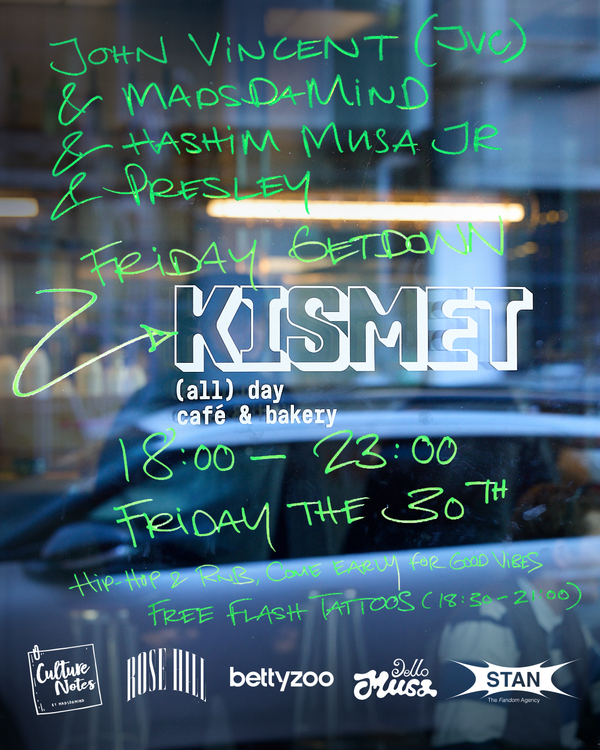 JOHN VINCENT (JVC)
& MADSDAMIND
& HASHIM MUSA JR
& PRESLEY
FRIDAY GETDOWN
KISMET
(all) day
café & bakery
18:00 – 23:00
FRIDAY THE 30TH
HIP-HOP & RNB, COME EARLY FOR GOOD VIBES
FREE FLASH TATTOOS (18:30-21:00)
Culture Notes
BY MADSDAMIND
ROSE HILL
bettyzoo
Dello Musa
STAN
The Fandom Agency